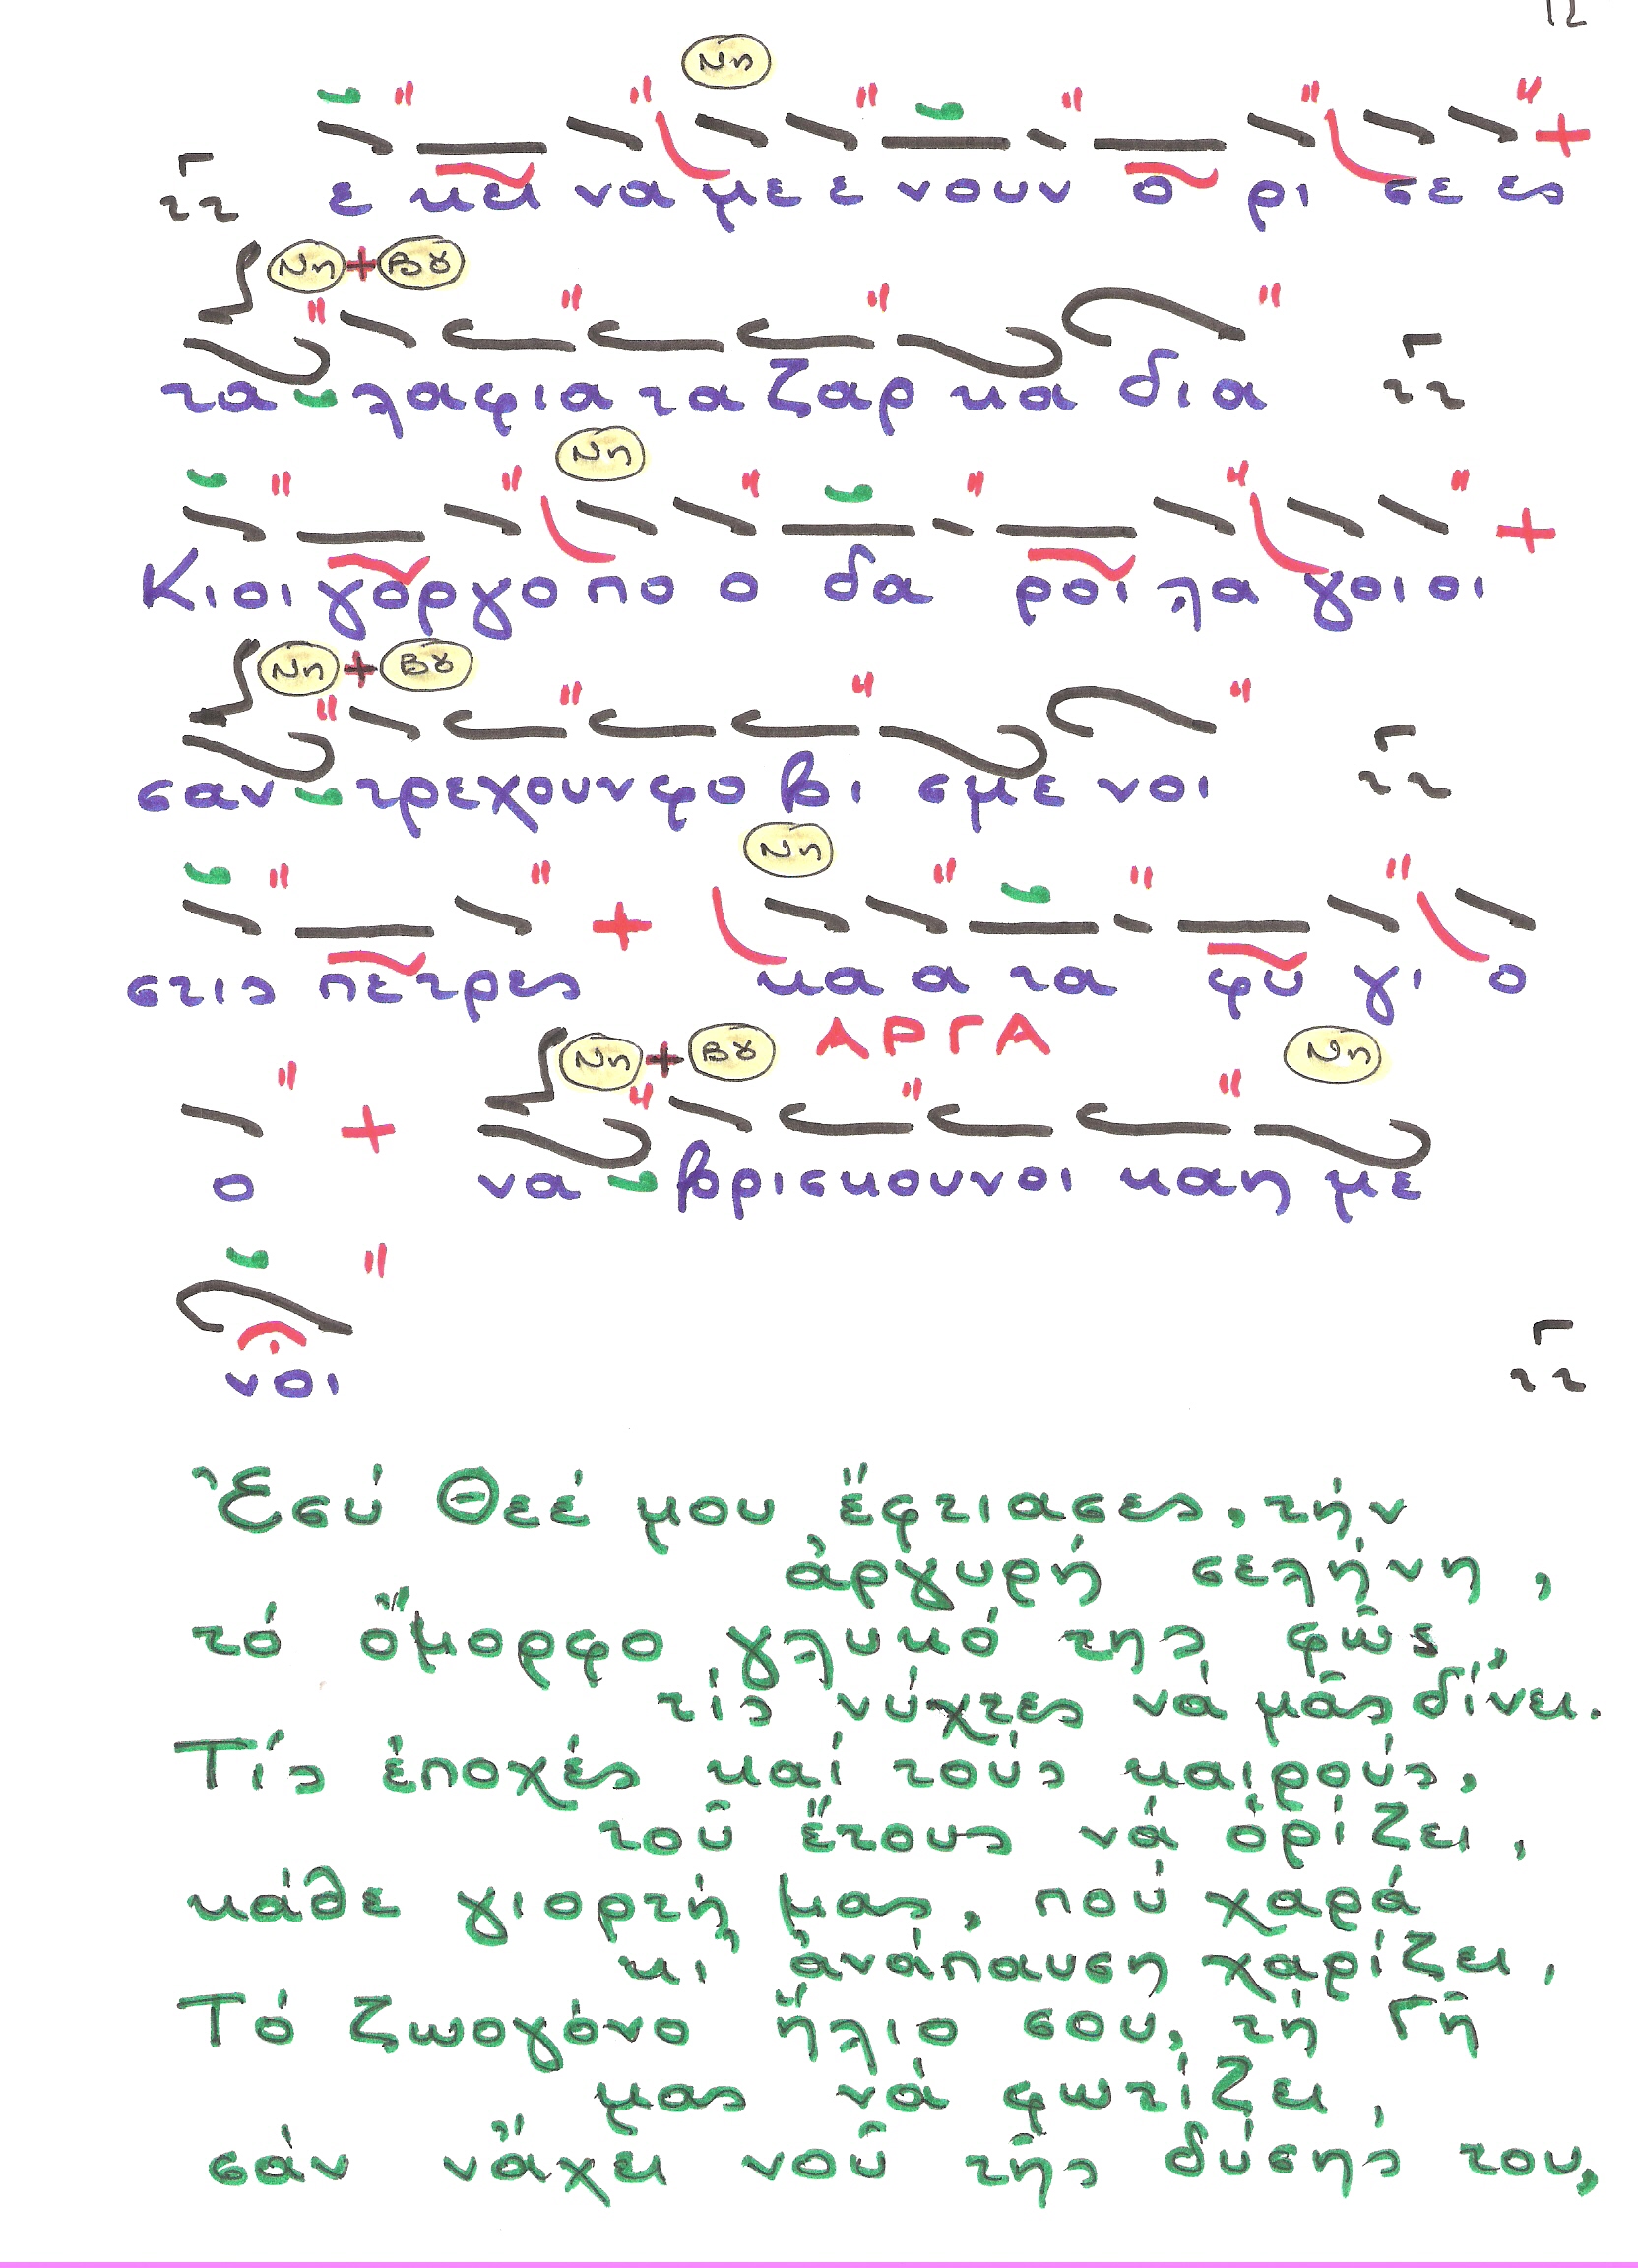 12
Νη
ε κει να με ε νουν ο ρι σε ες
Νη + Βου
τα λαφια τα ζαρ κα δια
Νη
Κι οι γορ γο πο ο δα ροι λα γοι οι
Νη + Βου
σαν τρεχουν φο βι σμε νοι
Νη
στις πετρες κα α τα φυ γι ο
Νη + Βου ΑΡΓΑ Νη
ο να βρισκουν οι καη με
νοι
Ἐσύ Θεέ μου ἔφτιασες, τήν
ἀργυρή σελήνη,
τό ὄμορφο γλυκό της φῶς,
τίς νύχτες νά μᾶς δίνει.
Τίς ἐποχές καί τούς καιρούς,
τοῦ ἔτους νά ὁρίζει,
κάθε γιορτή μας, πού χαρά
κι' ἀνάπαυση χαρίζει,
Τό ζωογόνο ἥλιο σου, τή Γῆ
μας νά φωτίζει,
σάν νἄχει νοῦ τῆς δύσης του,